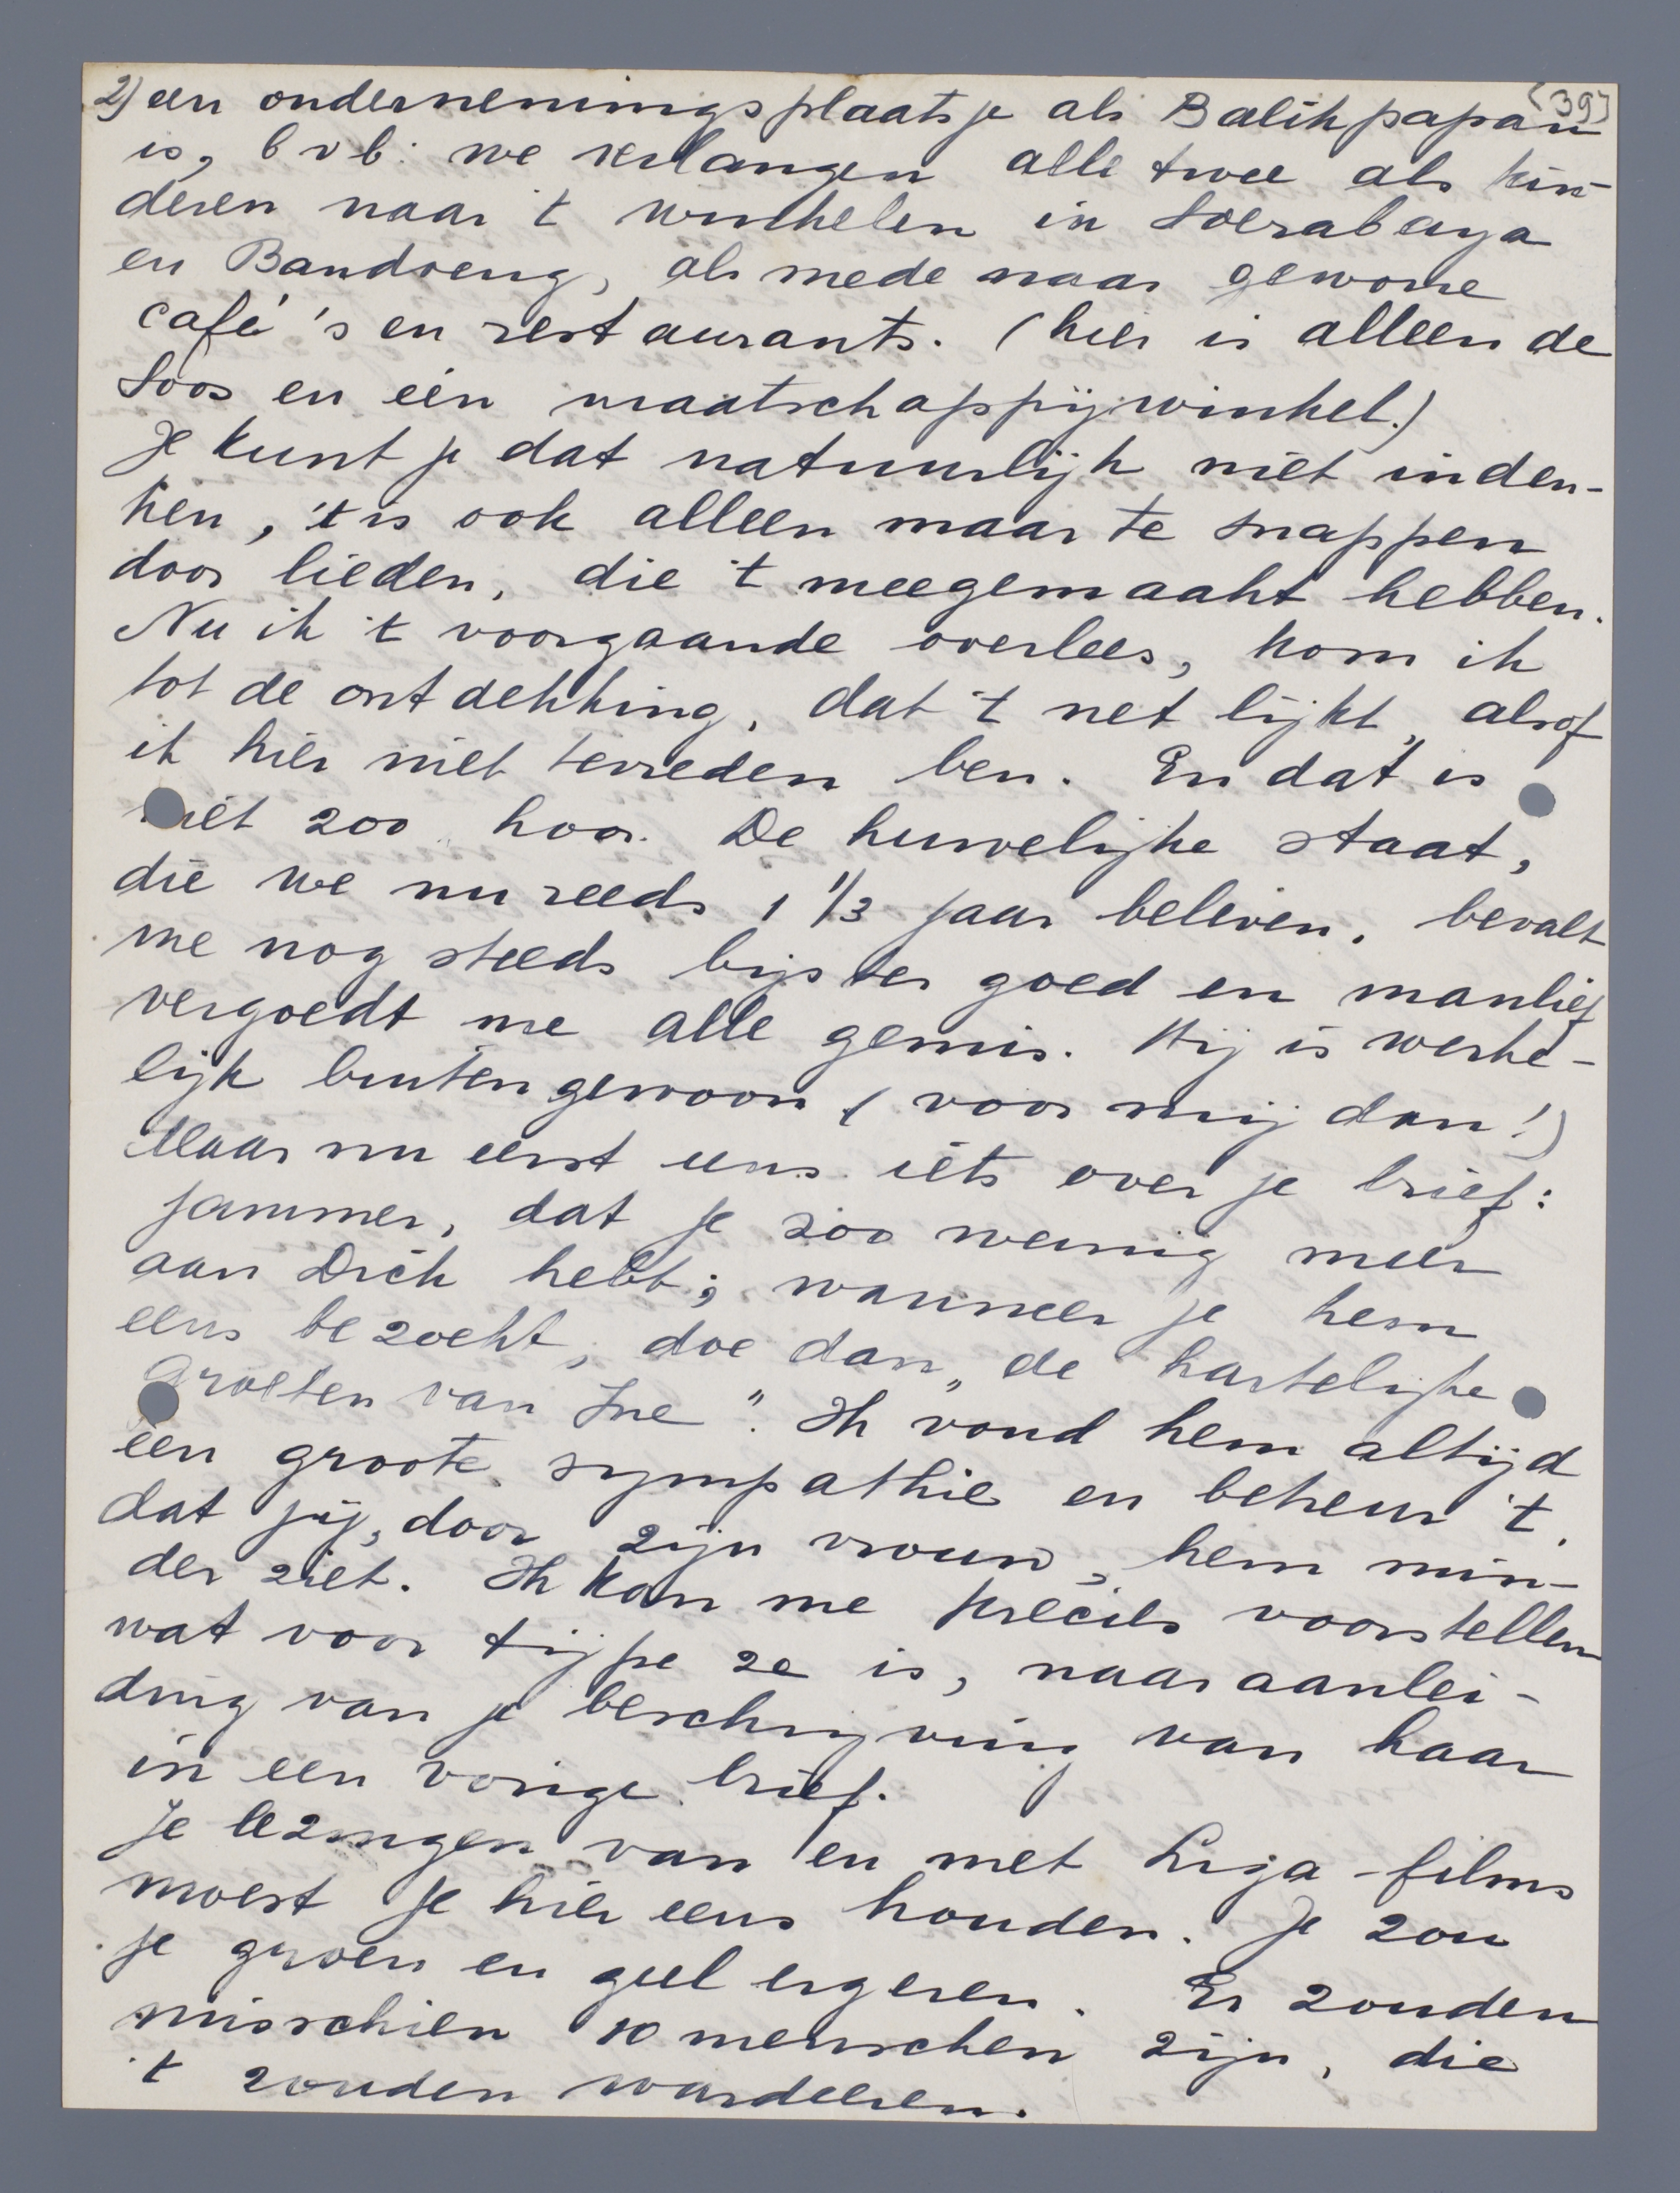 2) een ondernemingsplaatsje als Balikpapan (39)
is, bvb: we verlangen alle twee als kin-
deren naar 't winkelen in Soerabaya
en Bandoeng, als mede naar gewone
café's en restaurants. (hier is alleen de
Soos en één maatschappijwinkel.)
Je kunt je dat natuurlijk niet inden-
ken, 't is ook alleen maar te snappen
door lieden, die 't meegemaakt hebben.
Nu ik 't voorgaande overlees, kom ik
tot de ontdekking, dat 't net lijkt, alsof
ik hier niet tevreden ben. En dat is
niet zoo hoor. De huwelijke staat,
die we nu reeds 1 1/3 jaar beleven, bevalt
me nog steeds bijster goed en manlief
vergoedt me alle gemis. Hij is werke-
lijk buitengewoon (voor mij dan!)
Maar nu eerst eens iets over je brief:
jammer, dat je zoo weinig meer
aan Dick hebt; wanneer je hem
eens bezoekt, doe dan „de hartelijke
Groeten van Ine". Ik vond hem altijd
een groote sympathie en betreur 't,
dat jij, door zijn vrouw, hem min-
der ziet. Ik kan me precies voorstellen
wat voor tijpe ze is, naar aanlei-
ding van je beschrijving van haar
in een vorige brief.
Je lezingen van en met Liga-films
moest je hier eens houden. Je zou
je groen en geel ergeren. Er zouden
misschien 10 menschen zijn, die
't zouden wardeeren.